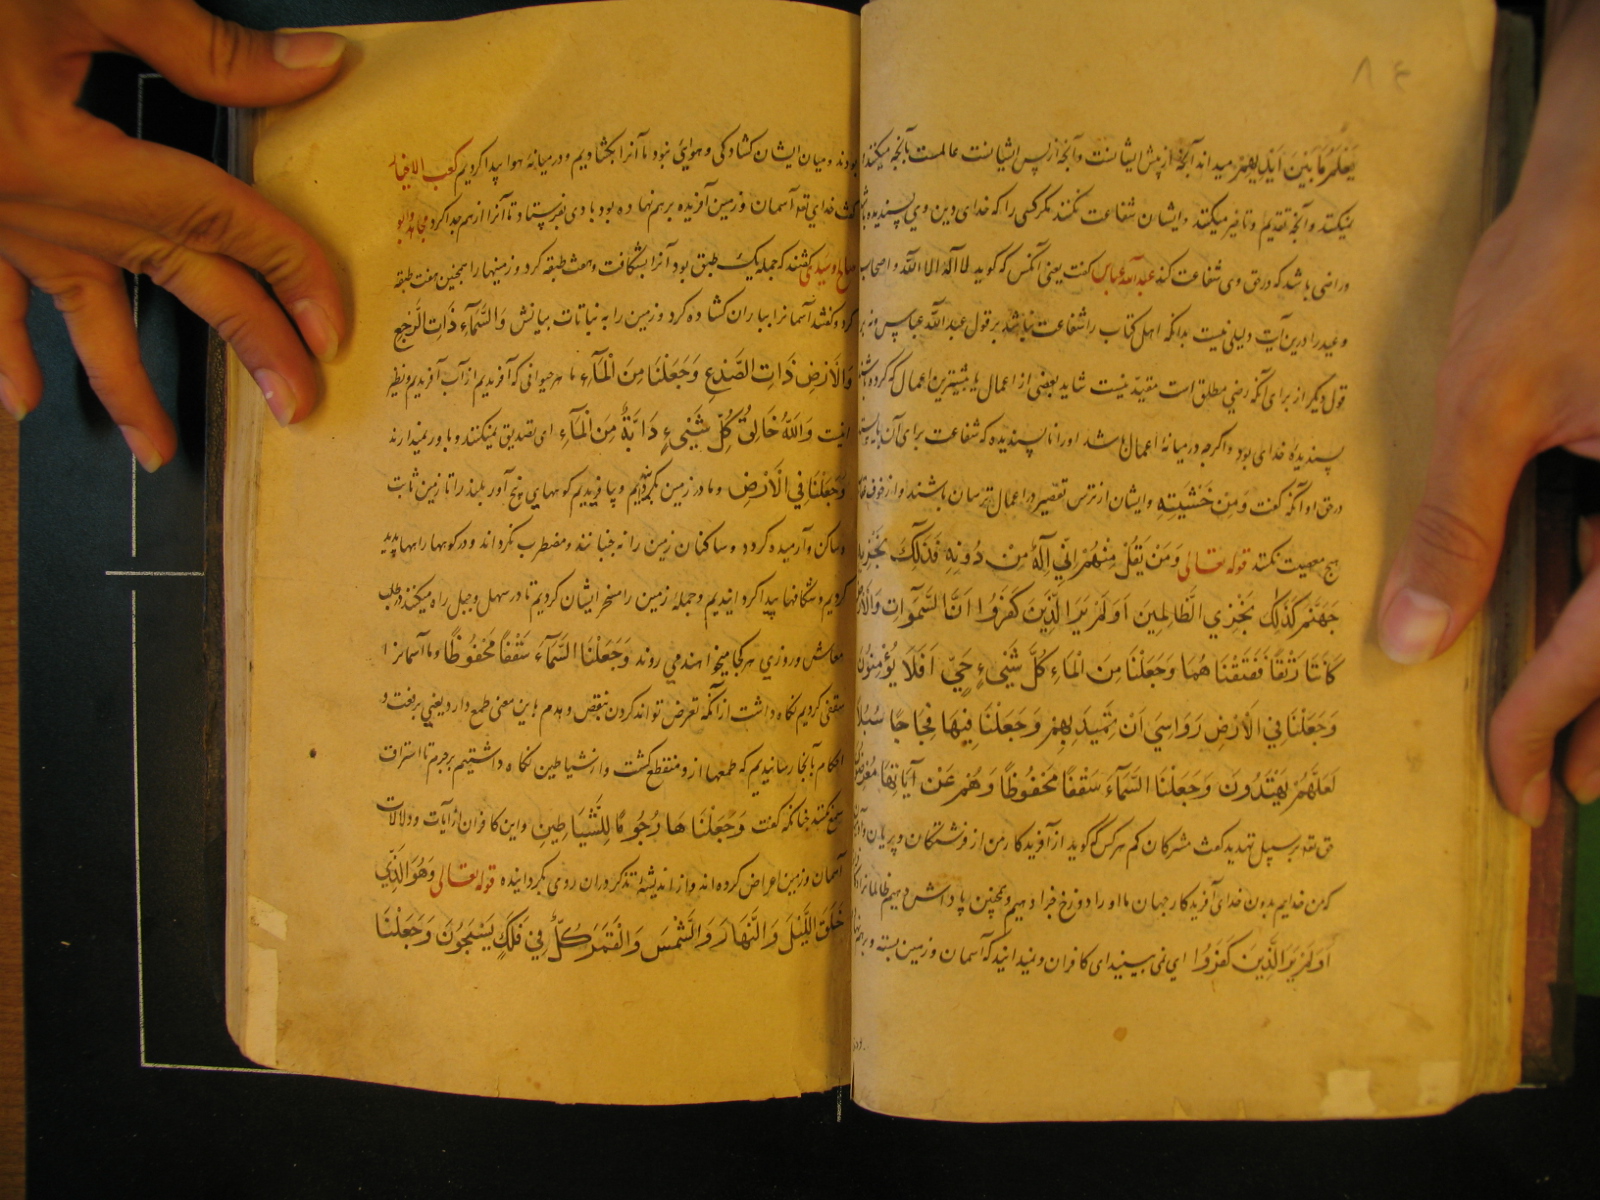 ۸۴
يَعْلَمُ مَا بَيْنَ اَيْدِيهِمْ میداند آنچه از پیش ایشانست وآنچه از پس ایشانست عالمست بآنچه میکنند
نمیکنند وآنچه تقدیم وتاخیر میکنند وایشان شفاعت نکنند مگر کسی را که خدای دین وی پسندیده
وراضی باشد که در حق وی شفاعت کند عبدالله عباس گفت یعنی آنکس که گوید لا اله الا الله واصحاب
وعید را درین آیت دلیلی نیست بدانکه اهل کتاب را شفاعت نباشد بر قول عبدالله عباس
قول دیگر از برای آنکه رضی مطلق است مقید نیست شاید بعضی از اعمال یا بیشترین اعمال که کرده
پسندیدهٔ خدای بود واگرچه در میانهٔ اعمال باشد اورا ناپسندیده که شفاعت برای آن
در حق او آنگه گفت وَمِنْ خَشْيَتِهِ وایشان از ترس تقصیر در اعمال ترسان باشند واز خوف
هیچ معصیت نکنند قوله تعالی وَمَنْ يَقُلْ مِنْهُمْ اِنِّي اِلَهٌ مِنْ دُونِهِ فَذَلِكَ نَجْزِيهِ
جَهَنَّمَ كَذَلِكَ نَجْزِي الظَّالِمِينَ اَوَلَمْ يَرَ الَّذِينَ كَفَرُوا اَنَّ السَّمَوَاتِ وَالْاَرْضَ
كَانَتَا رَتْقًا فَفَتَقْنَا هُمَا وَجَعَلْنَا مِنَ الْمَاءِ كُلَّ شَيْءٍ حَيٍّ اَفَلَا يُؤْمِنُونَ
وَجَعَلْنَا فِي الْاَرْضِ رَوَاسِيَ اَنْ تَمِيدَ بِهِمْ وَجَعَلْنَا فِيهَا فِجَاجًا سُبُلًا
لَعَلَّهُمْ يَهْتَدُونَ وَجَعَلْنَا السَّمَآءَ سَقْفًا مَحْفُوظًا وَهُمْ عَنْ آيَاتِهَا مُعْرِضُونَ
حق تعه بر سبیل تهدید گفت مشرکان کم هرکس که گوید از آفریدکار من از فرشتکان وپریان
که من خدایم بدون خدای آفریدکار جهان ما اورا دوزخ جزا دهیم وهمچنین پاداش دهیم ظالمانرا
اَوَلَمْ يَرَ الَّذِينَ كَفَرُوا ای نمی بینید ای کافران ونمیدانید که آسمان وزمین بسته
بودند ومیان ایشان کشادکی وهوای نبود ما آنرا بکشادیم ودر میانهٔ هوا پیدا کردیم کعب الاخبار
گفت خدای تعه آسمان وزمین آفریده برهم نهاده بود بادی بفرستاد تا آنرا از هم جدا کرد مجاهد وابو
صالح وسدی گفتند که جمله یک طبق بود آنرا بشکافت وهفت طبقه کرد وزمینها را همچنین هفت طبقه
کرد وگفتند آسمانرا بباران کشاده کرد وزمین را به نباتات بیانش وَالسَّمَآءِ ذَاتِ الرَّجْعِ
وَالْاَرْضِ ذَاتِ الصَّدْعِ وَجَعَلْنَا مِنَ الْمَآءِ ما هر حیوانی که آفریدیم از آب آفریدیم ونظیر
اینست وَاللهُ خَالِقُ كُلِّ شَيْءٍ دَابَّةٍ مِنَ الْمَآءِ ای تصدیق نمیکنند وباور نمیدارند
وَجَعَلْنَا فِي الْاَرْضِ وما در زمین وبیافریدیم کوههای میخ آور بلند را تا زمین ثابت
وساکن وآرمیده گردد وساکنان زمین را نه جنبانند ومضطرب نکرداند ودر کوهها راهها پدید
کردیم وشکافها پیدا کردانیدیم وجملهٔ زمین را مسخر ایشان کردیم تا در سهل وجبل راه میکنند در طلب
معاش وروزی هرکجا میخواهند می روند وَجَعَلْنَا السَّمَآءَ سَقْفًا مَحْفُوظًا وما آسمانرا
سقفی کردیم نکاه داشت از آنکه تعرض تواند کردن بنقض وهدم یا بن معنی طمع دارد یعنی برفعت و
احکام بآنجا رسانیدیم که طمعها ازو منقطع گشت واز شیاطین نکاه داشتیم برجم تا استراق
سمع نکنند چنانکه گفت وَجَعَلْنَا هَا رُجُومًا لِلشَّيَاطِينِ واین کافران از آیات ودلالات
آسمان وزمین اعراض کرده اند واز اندیشه وتذکر در آن روی بکردانیده قوله تعالی وَهُوَ الَّذِي
خَلَقَ اللَّيْلَ وَالنَّهَارَ وَالشَّمْسَ وَالْقَمَرَ كُلٌّ فِي فَلَكٍ يَسْبَحُونَ وَجَعَلْنَا